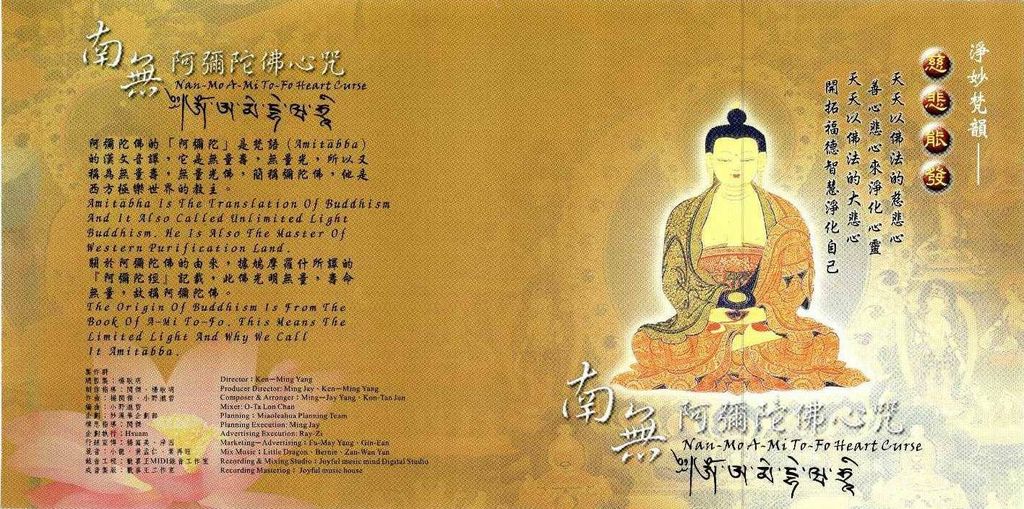 南無阿彌陀佛心咒
Nan-Mo A-Mi To-Fo Heart Curse
阿彌陀佛的「阿彌陀」是梵語 (Amitābba)
的漢文音譯，它是無量壽，無量光，所以又
稱為無量壽，無量光佛，簡稱彌陀佛，他是
西方極樂世界的教主。
Amitābha Is The Translation Of Buddhism
And It Also Called Unlimited Light
Buddhism. He Is Also The Master Of
Western Purification Land.
關於阿彌陀佛的由來，據鳩摩羅什所譯的
「阿彌陀經」記載，此佛光明無量，壽命
無量，故稱阿彌陀佛。
The Origin Of Buddhism Is From The
Book Of A-Mi To-Fo. This Means The
Limited Light And Why We Call
It Amitābba.
製作群
Director : Ken-Ming Yang
Producer Director: Ming Jay、Ken-Ming Yang
Composer & Arranger : Ming-Jay Yang、Kon-Tan Jan
Mixer: O-Ta Lon Chan
Planning : Miaoleahua Planning Team
Planning Execution: Ming Jay
Advertising Execution: Ray-Zi
Marketing-Advertising : Fu-May Yang、Gin-Ean
Mix Music : Little Dragon、Bernie、Zan-Wan Yan
Recording & Mixing Studio : Joyful music mind Digital Studio
Recording Mastering : Joyful music house
淨妙梵韻——
慈悲能發
天天以佛法的慈悲心
善心悲心來淨化心靈
天天以佛法的大悲心
開拓福德智慧淨化自己
南無阿彌陀佛心咒
Nan-Mo A-Mi To-Fo Heart Curse